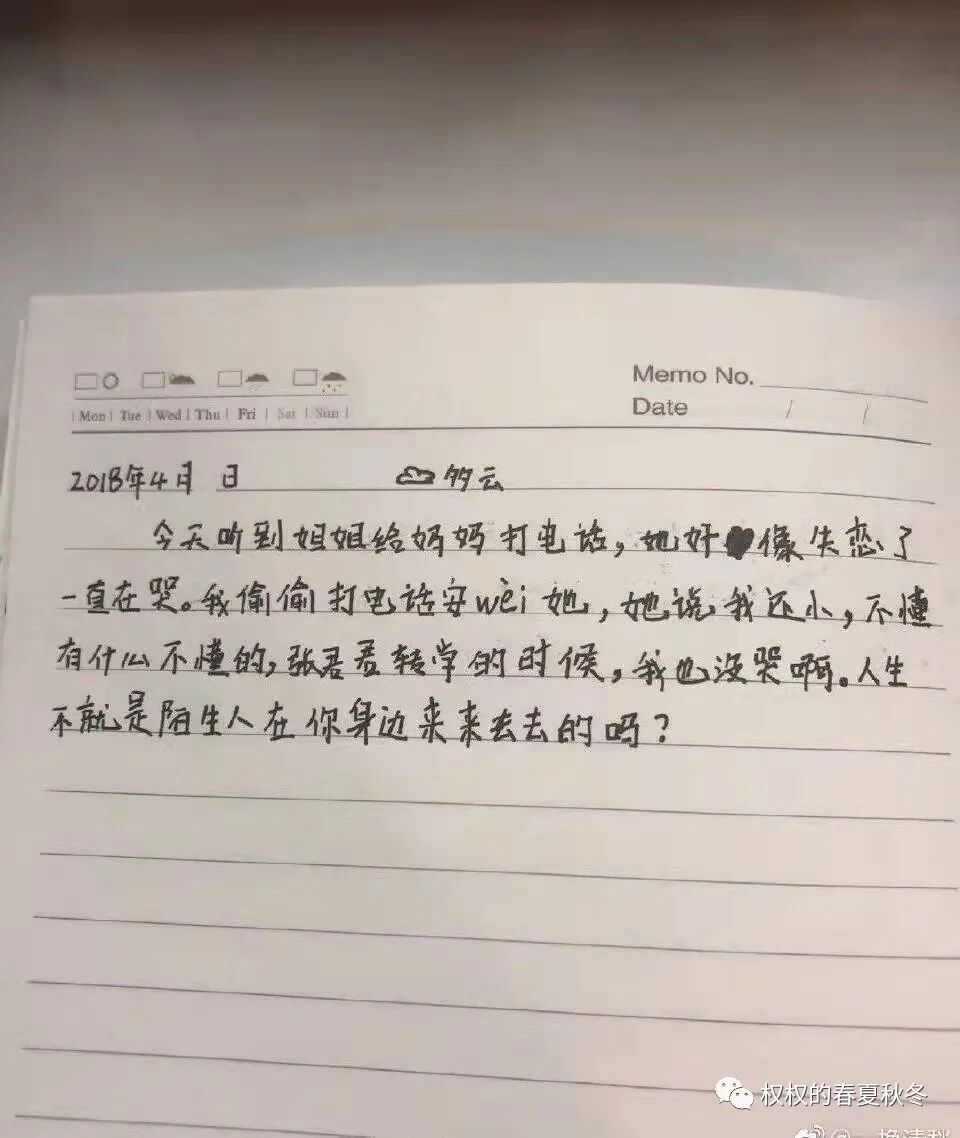 Memo No.
Mon Tue Wed Thu Fri Sat Sun
Date / /
2018年4月 日 多云
今天听到姐姐给妈妈打电话,她好像失恋了
一直在哭。我偷偷打电话安wèi她,她说我还小,不懂
有什么不懂的,张君君转学的时候,我也没哭啊。人生
不就是陌生人在你身边来来去去的吗?
权权的春夏秋冬